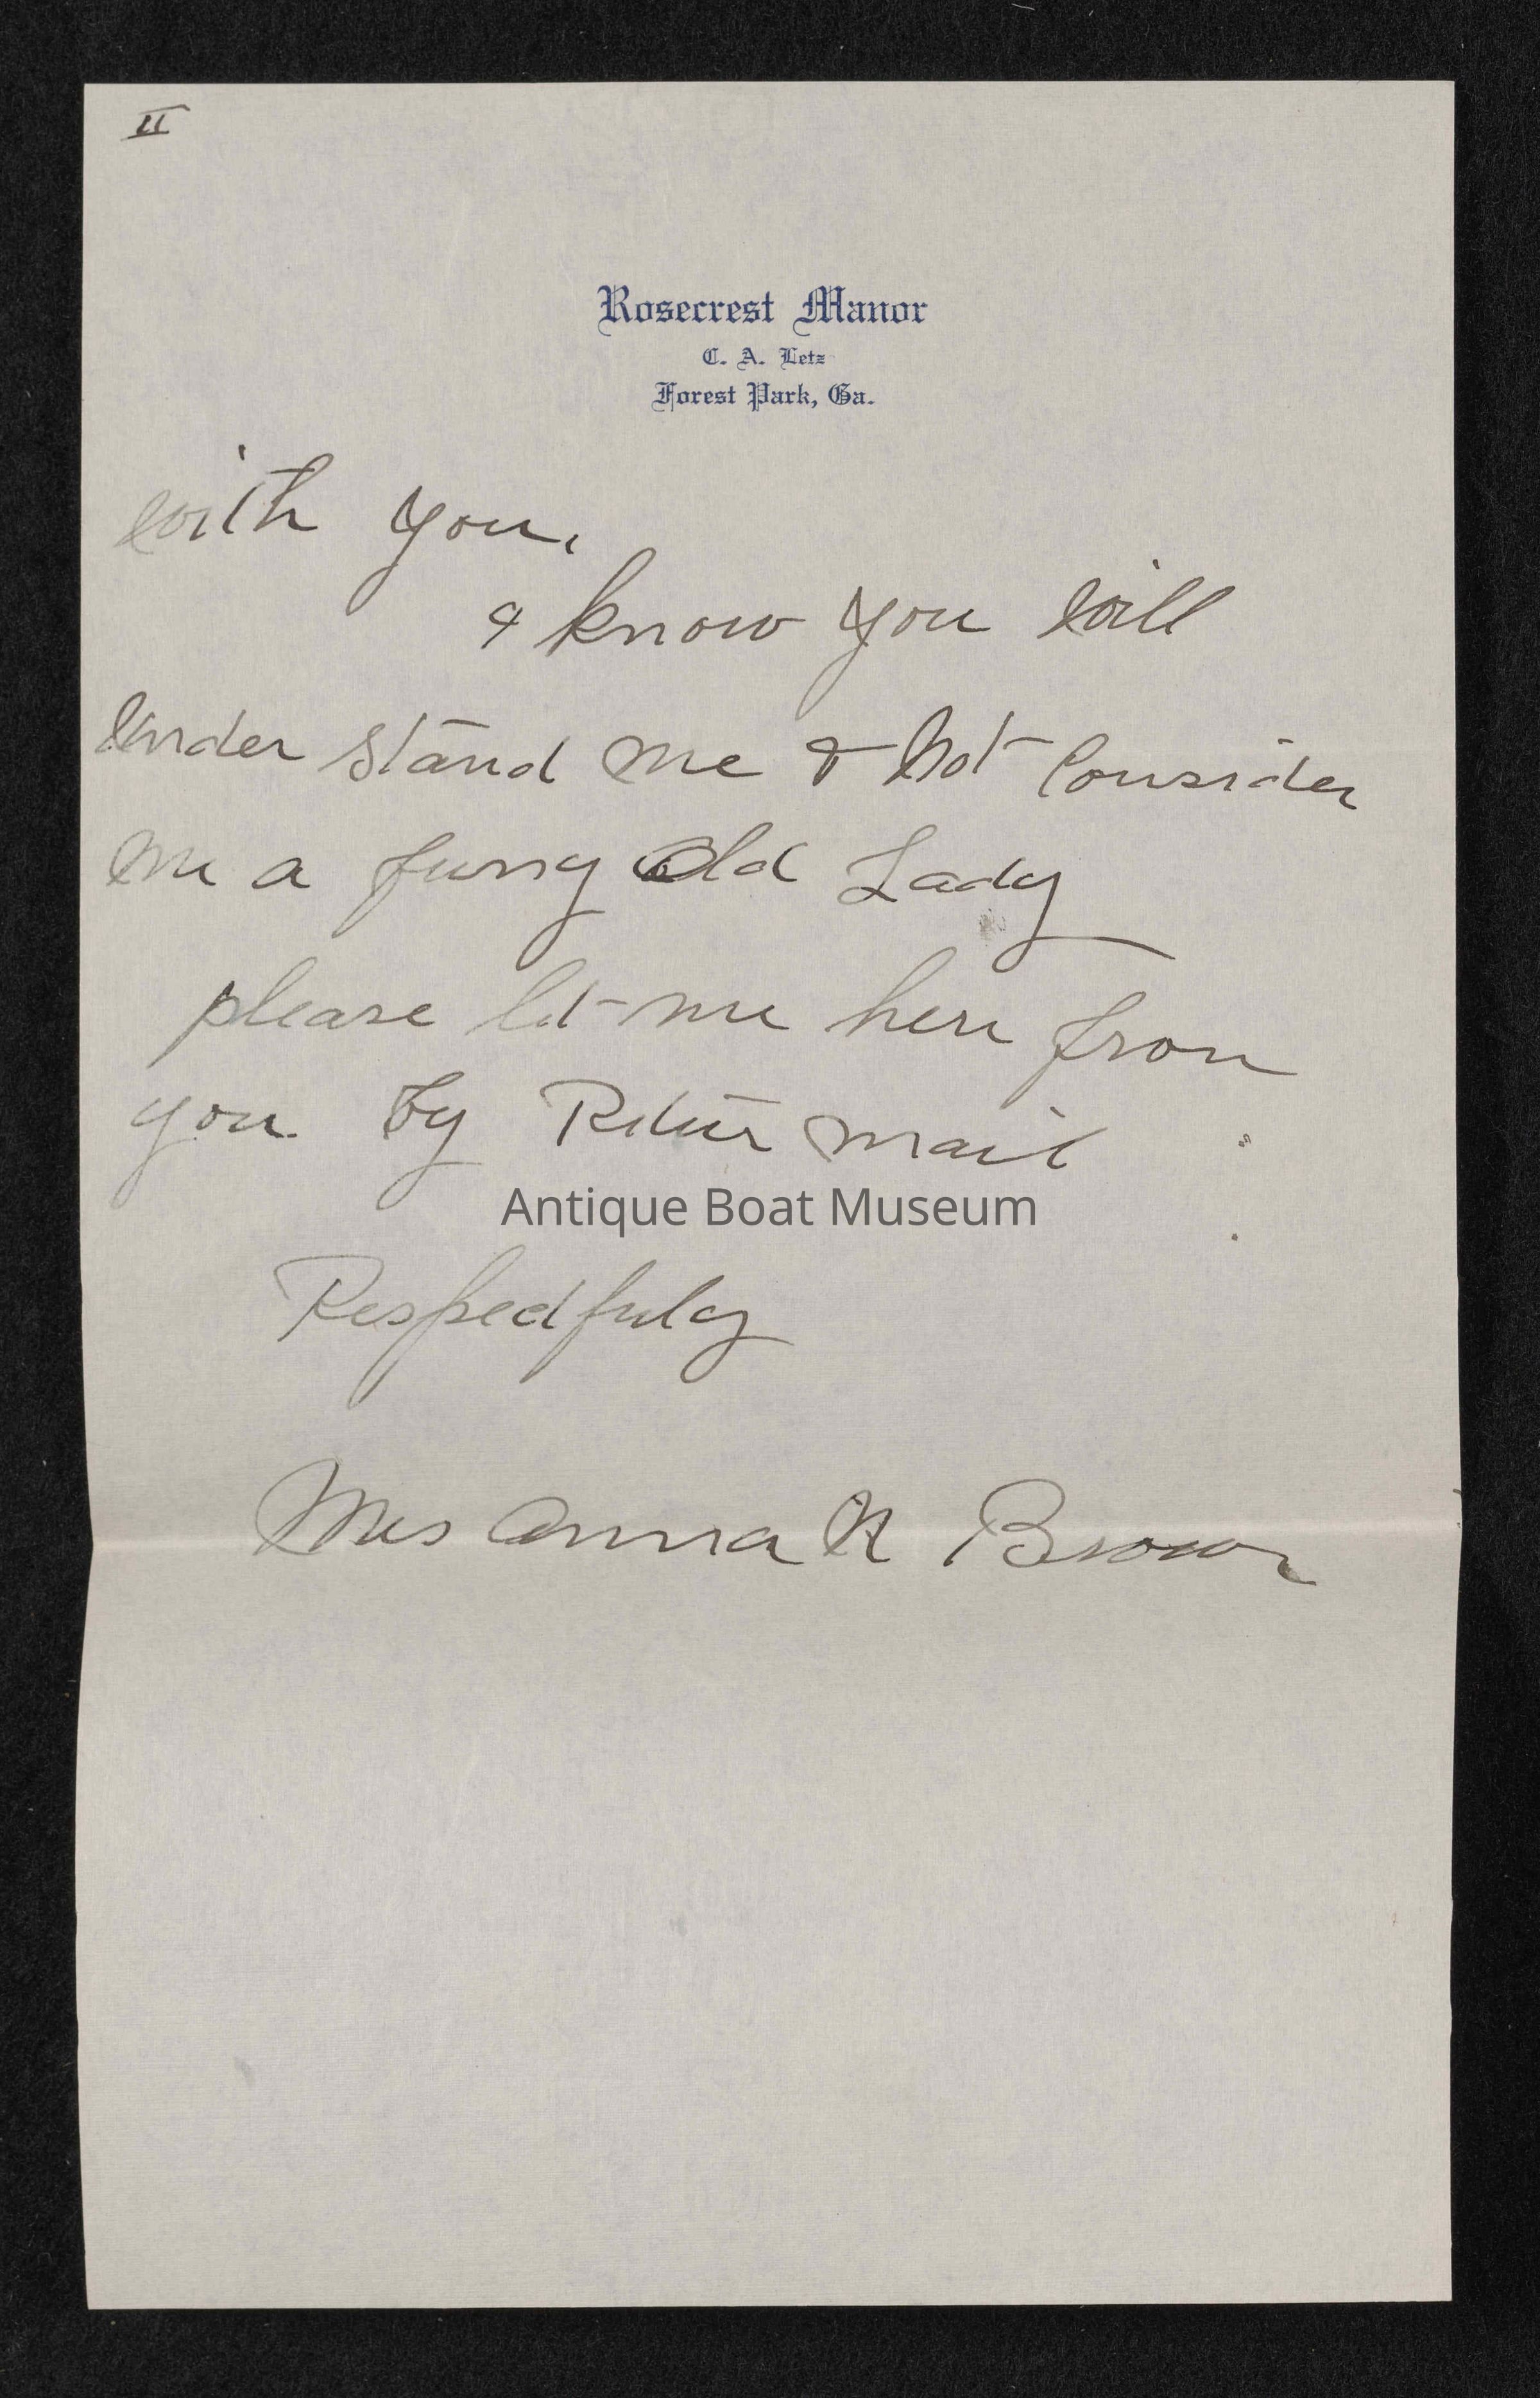 II
Rosecrest Manor
C. A. Letz
Forest Park, Ga.
with you.
& know you will
under stand me & not consider
me a funny old Lady
please let me here from
you by Return mail
Antique Boat Museum
Respectfuly
Mrs Anna K Brown